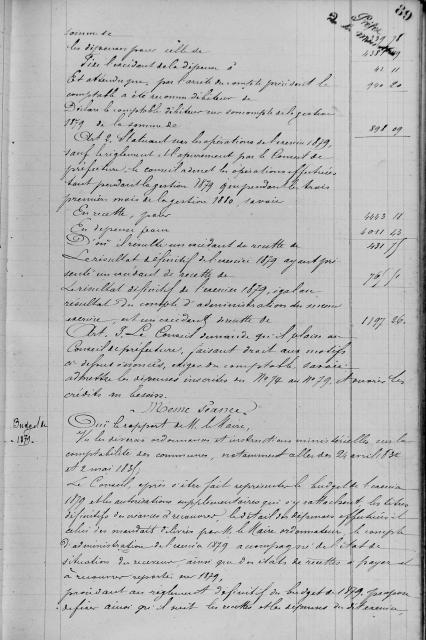 89
somme de 339 78
les dépenses pour celle de
D'où l'excédent de la dépense à 41 11
Et attendu que, par l'arrêté du compte précédent le
comptable a été reconnu débiteur de 940 20
Déclare le comptable débiteur sur son compte de la gestion
1879 de la somme de 898 09
Art. 2. Statuant sur les opérations de l'exercice 1879,
sauf le règlement et l'apurement par le Conseil de
préfecture, le conseil admet les opérations effectuées
tant pendant la gestion 1879 que pendant les trois
premiers mois de la gestion 1880, savoir
En recette, pour 4443 18
En dépense pour 4011 43
D'où il résulte un excédent de recette de 431 75
Le résultat définitif de l'exercice 1879 ayant pré-
senté un excédent de recette de
Le résultat définitif de l'exercice 1879, égal au
résultat du compte d'administration du même
exercice, est un excédent de recette de 1197 26
Art. 3. Le Conseil demande qu'il plaise au
Conseil de préfecture, faisant droit aux motifs
ci-dessus énoncés, du comptable, savoir
admettre les dépenses inscrites aux Nos 74 au No 79, et ouvrir les
crédits au besoin.
Même Séance
Budget de
1879
Ouï le rapport de M. le Maire,
Vu les diverses ordonnances et instructions ministérielles sur la
comptabilité des communes, notamment celles des 24 avril
et 2 mai
Le Conseil, après s'être fait représenter le budget de l'exercice
1879 et les autorisations supplémentaires qui s'y rattachent, les titres
définitifs des créances à recouvrer, le détail des dépenses effectuées et
celui des mandats délivrés par M. le Maire ordonnateur, le compte
d'administration de l'exercice 1879 accompagné de l'état de
situation du receveur, ainsi que des états de recettes à payer et
à recouvrer reportés en 1879,
procédant au règlement définitif du budget de 1879, propose
de fixer ainsi qu'il suit les recettes et les dépenses du dit exercice,